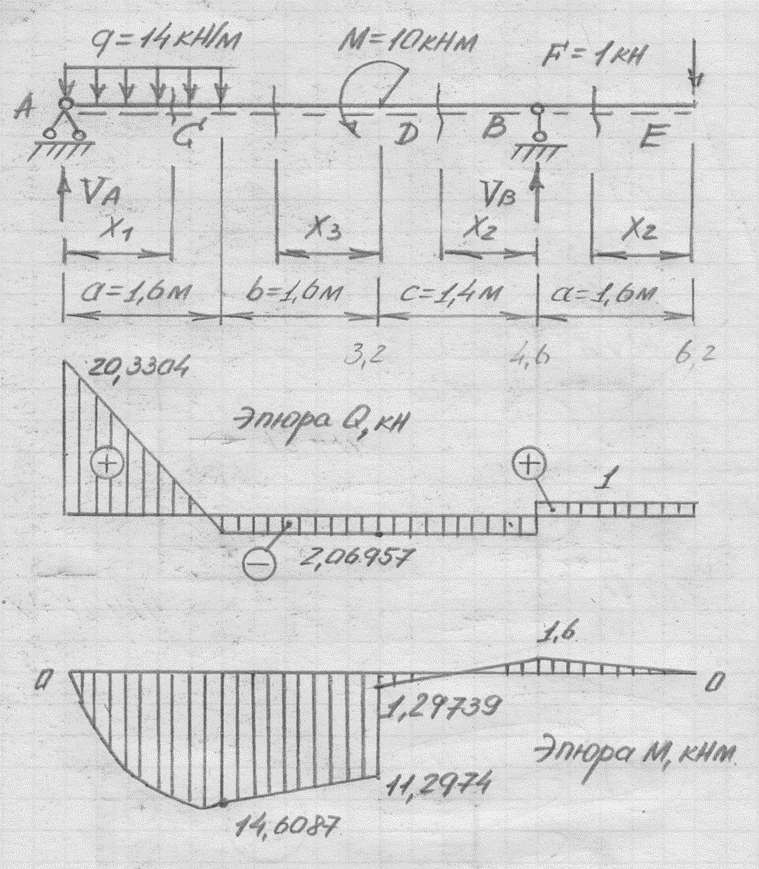 q=14кН/м
M=10кНм
F=1кН
A
C
D
B
E
VA
VB
X1
X3
X2
X2
a=1,6м
b=1,6м
c=1,4м
a=1,6м
3,2
4,6
6,2
20,3304
Эпюра Q, кН
+
+
1
−
2,06957
1,6
0
0
1,29739
Эпюра М, кНм
11,2974
14,6087